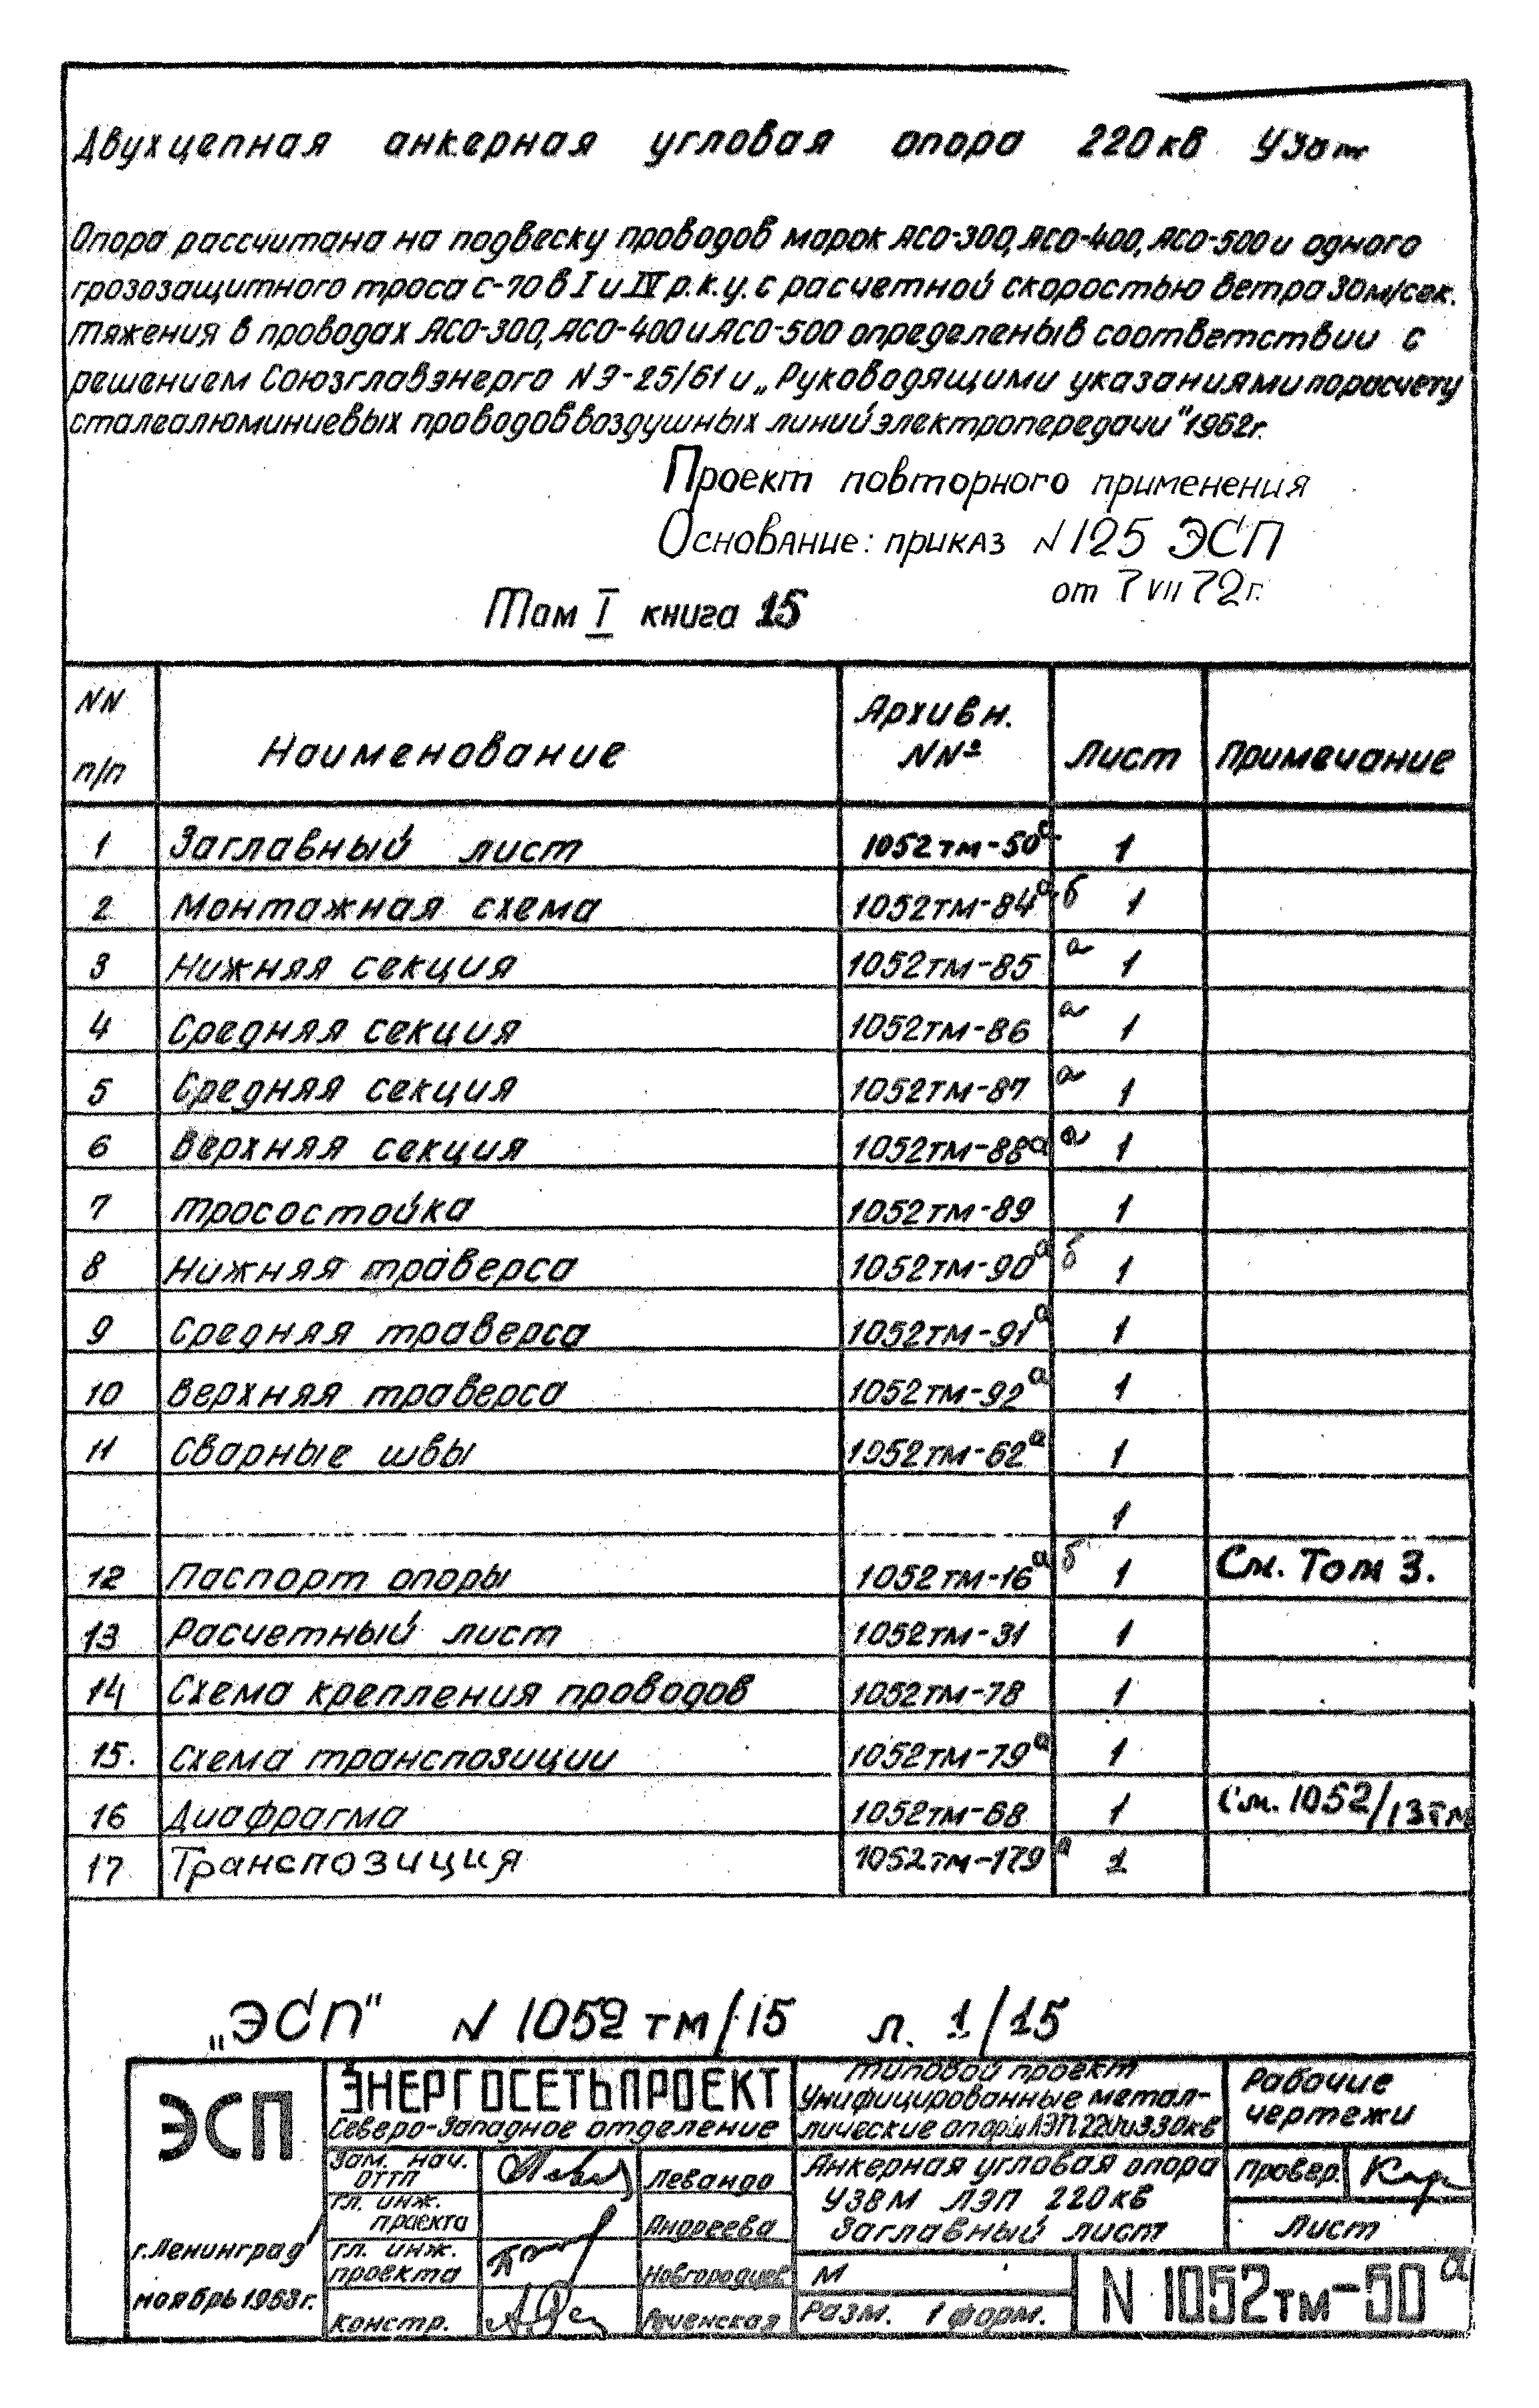 Двухцепная анкерная угловая опора 220кв
Опора рассчитана на подвеску проводов марок АСО-300, АСО-400, АСО-500 и одного
грозозащитного троса С-70 в I и IV р.к.у. с расчетной скоростью ветра 30м/сек.
Тяжения в проводах АСО-300, АСО-400 и АСО-500 определены в соответствии с
решением Союзглавэнерго N Э-25/61 и „Руководящими указаниями по расчету
сталеалюминиевых проводов воздушных линий электропередачи" 1962г.
Проект повторного применения
Основание: приказ N125 ЭСП
от 7 VII 72г.
Том I книга 15
NN п/п Наименование Архивн. NNº Лист Примечание
1 Заглавный лист 1052тм-50 1
2 Монтажная схема 1052тм-84а б 1
3 Нижняя секция 1052тм-85 а 1
4 Средняя секция 1052тм-86 а 1
5 Средняя секция 1052тм-87 а 1
6 Верхняя секция 1052тм-88а а 1
7 Тросостойка 1052тм-89 1
8 Нижняя траверса 1052тм-90а б 1
9 Средняя траверса 1052тм-91а 1
10 Верхняя траверса 1052тм-92а 1
11 Сварные швы 1052тм-62а 1
1
12 Паспорт опоры 1052тм-16а б 1 См. Том 3.
13 Расчетный лист 1052тм-31 1
14 Схема крепления проводов 1052тм-78 1
15. Схема транспозиции 1052тм-79а 1
16 Диафрагма 1052тм-68 1 См. 1052/13тм
17 Транспозиция 1052тм-179а 1
„ЭСП" N 1052тм/15 л. 1/15
ЭСП
г.Ленинград
ноябрь 1963г.
ЭНЕРГОСЕТЬПРОЕКТ
Северо-Западное отделение
Зам. нач. ОТТП Левандо
гл. инж. проекта Андреева
гл. инж. проекта Новгородцев
Констр.
Типовой проект
Унифицированные метал-
лические опоры ЛЭП 220 и 330кв
Анкерная угловая опора
ЛЭП 220кв
Заглавный лист
М
Разм. 1 форм.
Рабочие
чертежи
Провер.
Лист
N 1052тм-50а